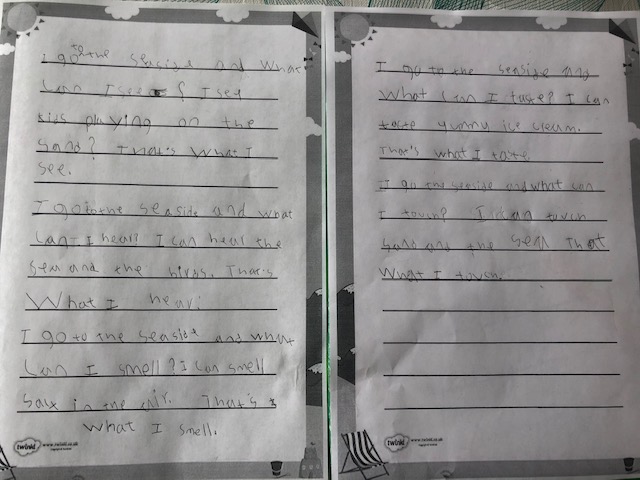 I go to the seaside and what
can I see? I see
kids playing on the
sand? That's what I
see.
I go to the seaside and what
can I hear? I can hear the
sea and the birds. That's
What I hear.
I go to the seaside and what
can I smell? I can smell
salt in the air. That's
what I smell.
twinkl www.twinkl.co.uk
I go to the seaside and
What can I taste? I can
taste yummy ice cream.
That's what I taste.
I go the seaside and what can
I touch? I can touch
sand and the sea. That
What I touch.
twinkl www.twinkl.co.uk